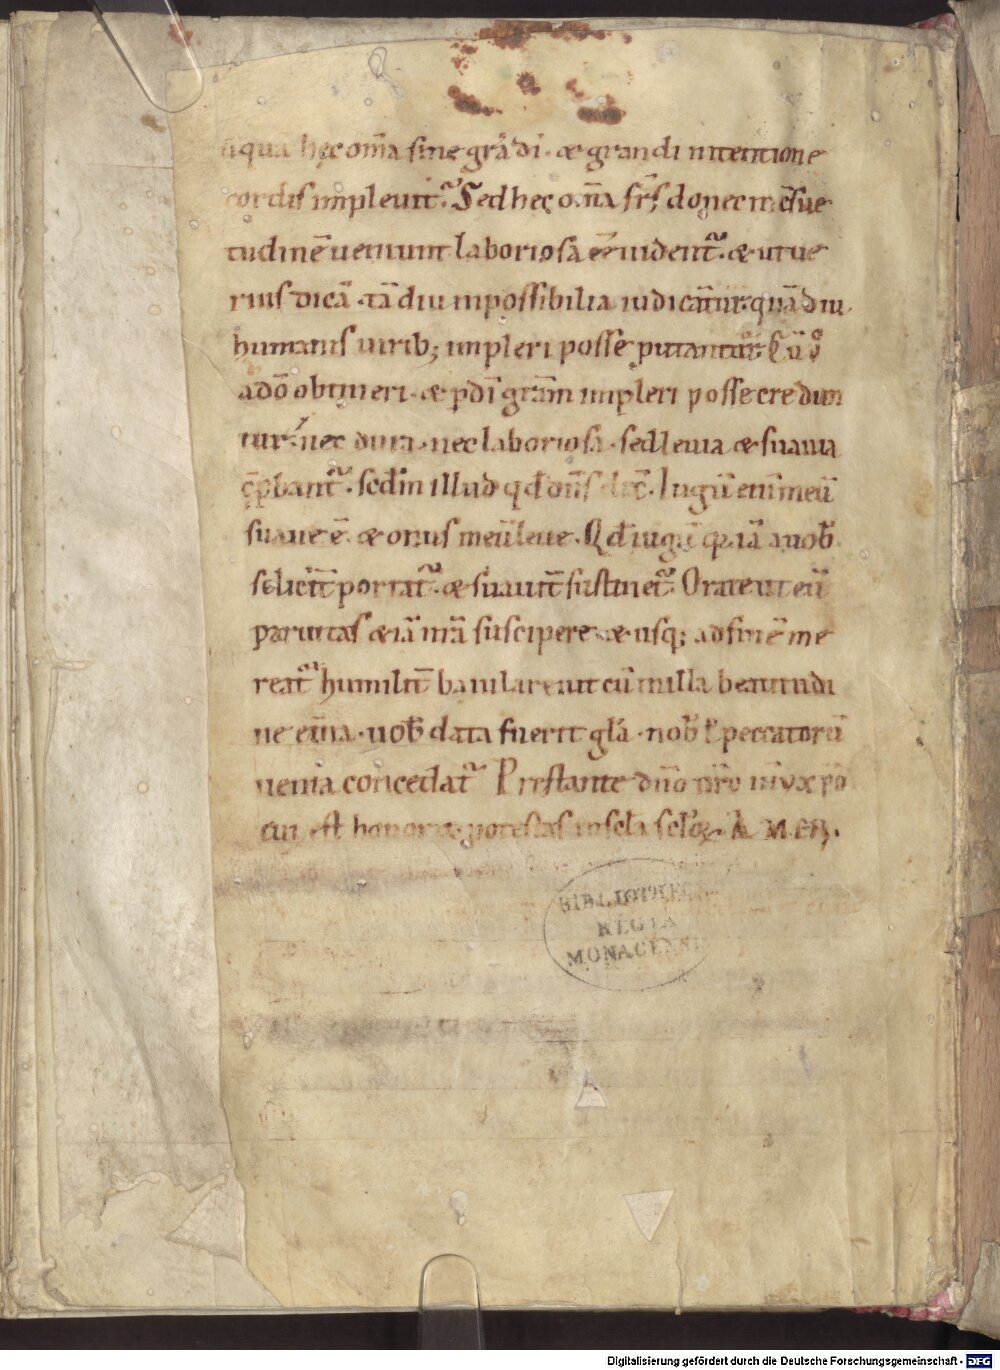 siqua hęc om̄a sine grā dī · & grandi intentione
cordis impleverit. Sed hęc om̄a frs̄ donec in c̄sue
tudinē ueniunt laboriosa ēē uident᷑ · & ut ue
rius dicā · tādiu inpossibilia iudicant᷑ · quādiu
humanis uirib; impleri posse putantur. Cū ū
a dō obtineri · & p dī grām impleri posse credun
tur · nec dura · nec laboriosa · sed leuia & suauia
cp̄bant᷑ · scdm illud qd dn̄s dic̄. Iugū enī meū
suaue ē · & onus meū leue. Qd iugū qa iā a uob̄
feliciť portat᷑ · & suauiť sustinet᷑. Orate ut eū
paruitas & iā nr̄a suscipere · & usq; ad finē me
reat᷑ humiliť baiulare · ut cū in illa beatitudi
ne et̄na · uob̄ data fuerit glā · nob̄ peccatorū
uenia concedat᷑. Prestante dn̄o nr̄o ihū xp̄o
cui est honor & potestas in scl̄a scl̄oꝝ. AMEN.
BIBLIOTHECA
REGIA
MONACENSIS
Digitalisierung gefördert durch die Deutsche Forschungsgemeinschaft - DFG